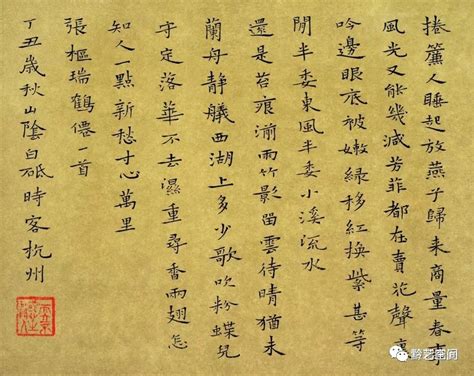 捲簾人睡起放燕子歸来商量春事
風光又能幾減芳菲都在賣花聲裏
吟邊眼底被嫩緑移紅換紫甚等
閒半委東風半委小溪流水
還是苔痕湔雨竹影留雲待晴猶未
蘭舟静艤西湖上多少歌吹粉蝶兒
守定落華不去濕重尋香兩翅怎
知人一點新愁寸心萬里
張樞瑞鶴僊一首
丁丑歲秋山陰白砥時客杭州
黔艺空间